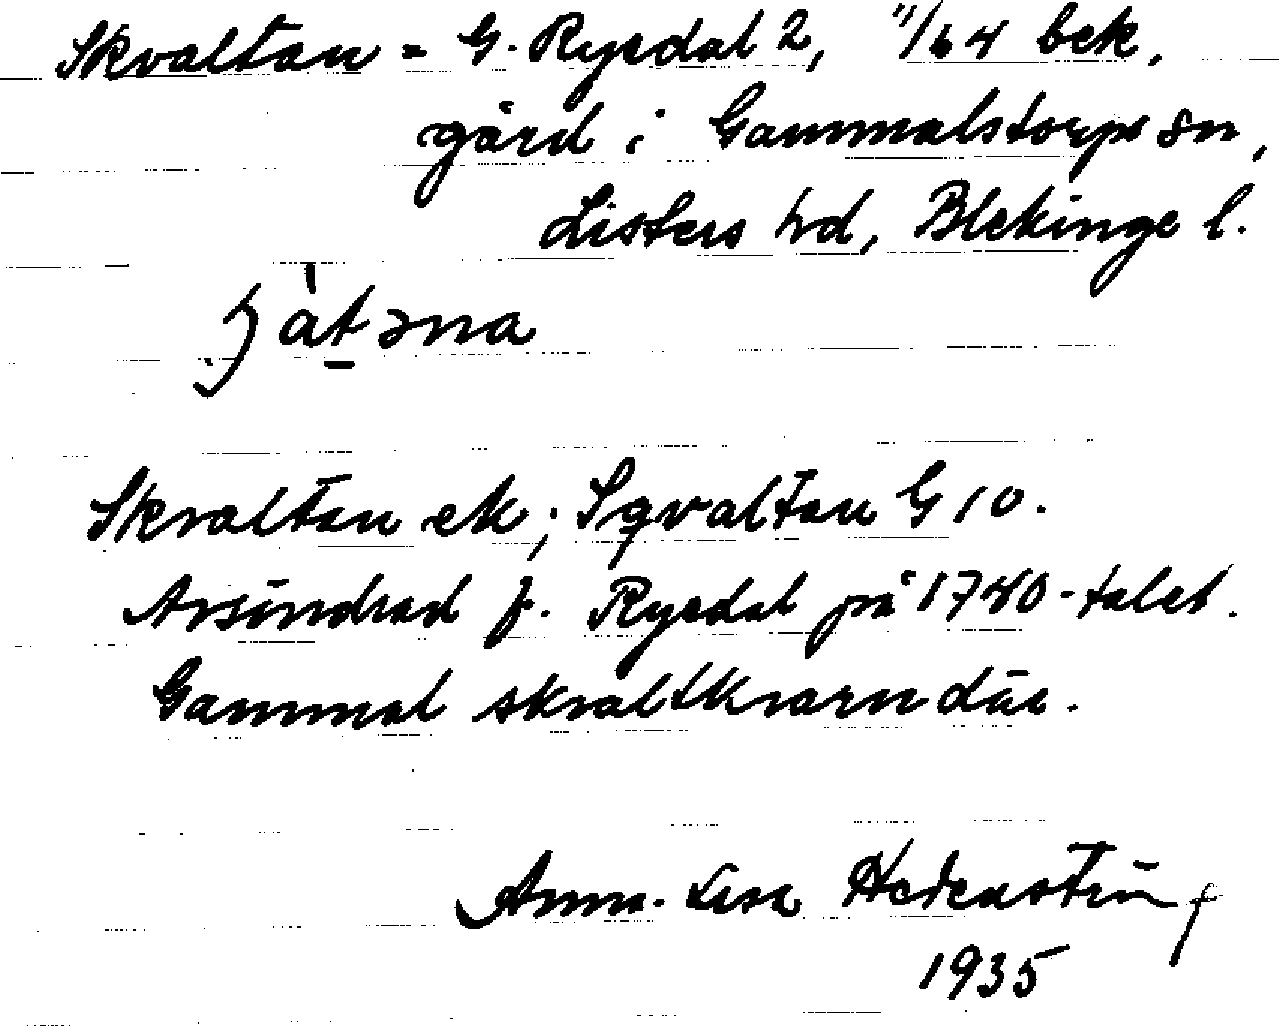 Skvaltan = G. Ryedal 2, 11/64 bek.
gård i Gammalstorps sn,
Listers hd, Blekinge l.
ʒàt̠əna
Skvaltan ek; Sqvaltan G 10.
Avsöndrad fr. Ryedal på 1740-talet.
Gammal skvaltkvarn där.
Anna-Lisa Hedenström
1935